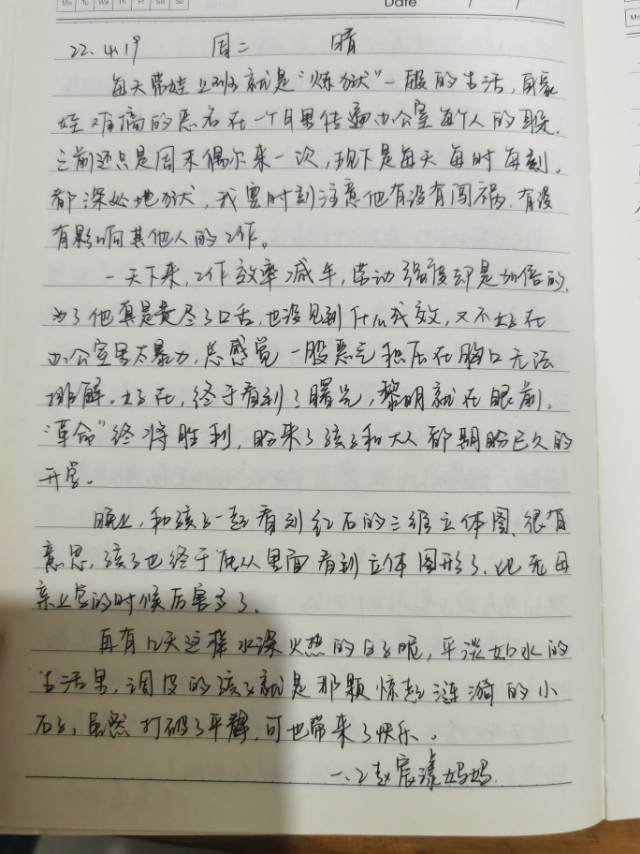 Mo Tu We Th Fr Sa Su
Date / /
22.4.19 周二 晴
每天带娃上班就是“炼狱”一般的生活,自家
娃难搞的恶名在一个月里传遍办公室每个人的耳朵
之前还只是周末偶尔来一次,现下是每天每时每刻,
都深处地狱,我要时刻注意他有没有闯祸,有没
有影响其他人的工作。
一天下来,工作效率减半,劳动强度却是加倍的,
为了他真是费尽了口舌,也没见到什么成效,又不好在
办公室里太暴力,总感觉一股恶气积压在胸口无法
排解。好在,终于看到了曙光,黎明就在眼前,
“革命”终将胜利,盼来了孩子和大人都期盼已久的
开学。
晚上,和孩子一起看到红石的三维立体图,很有
意思,孩子也终于能从里面看到立体图形了,比
亲上学的时候厉害多了。
再有几天这样水深火热的日子呢,平淡如水的
生活里,调皮的孩子就是那颗惊起涟漪的小
石子,虽然打破了平静,可也带来了快乐。
一、2赵宸漾妈妈